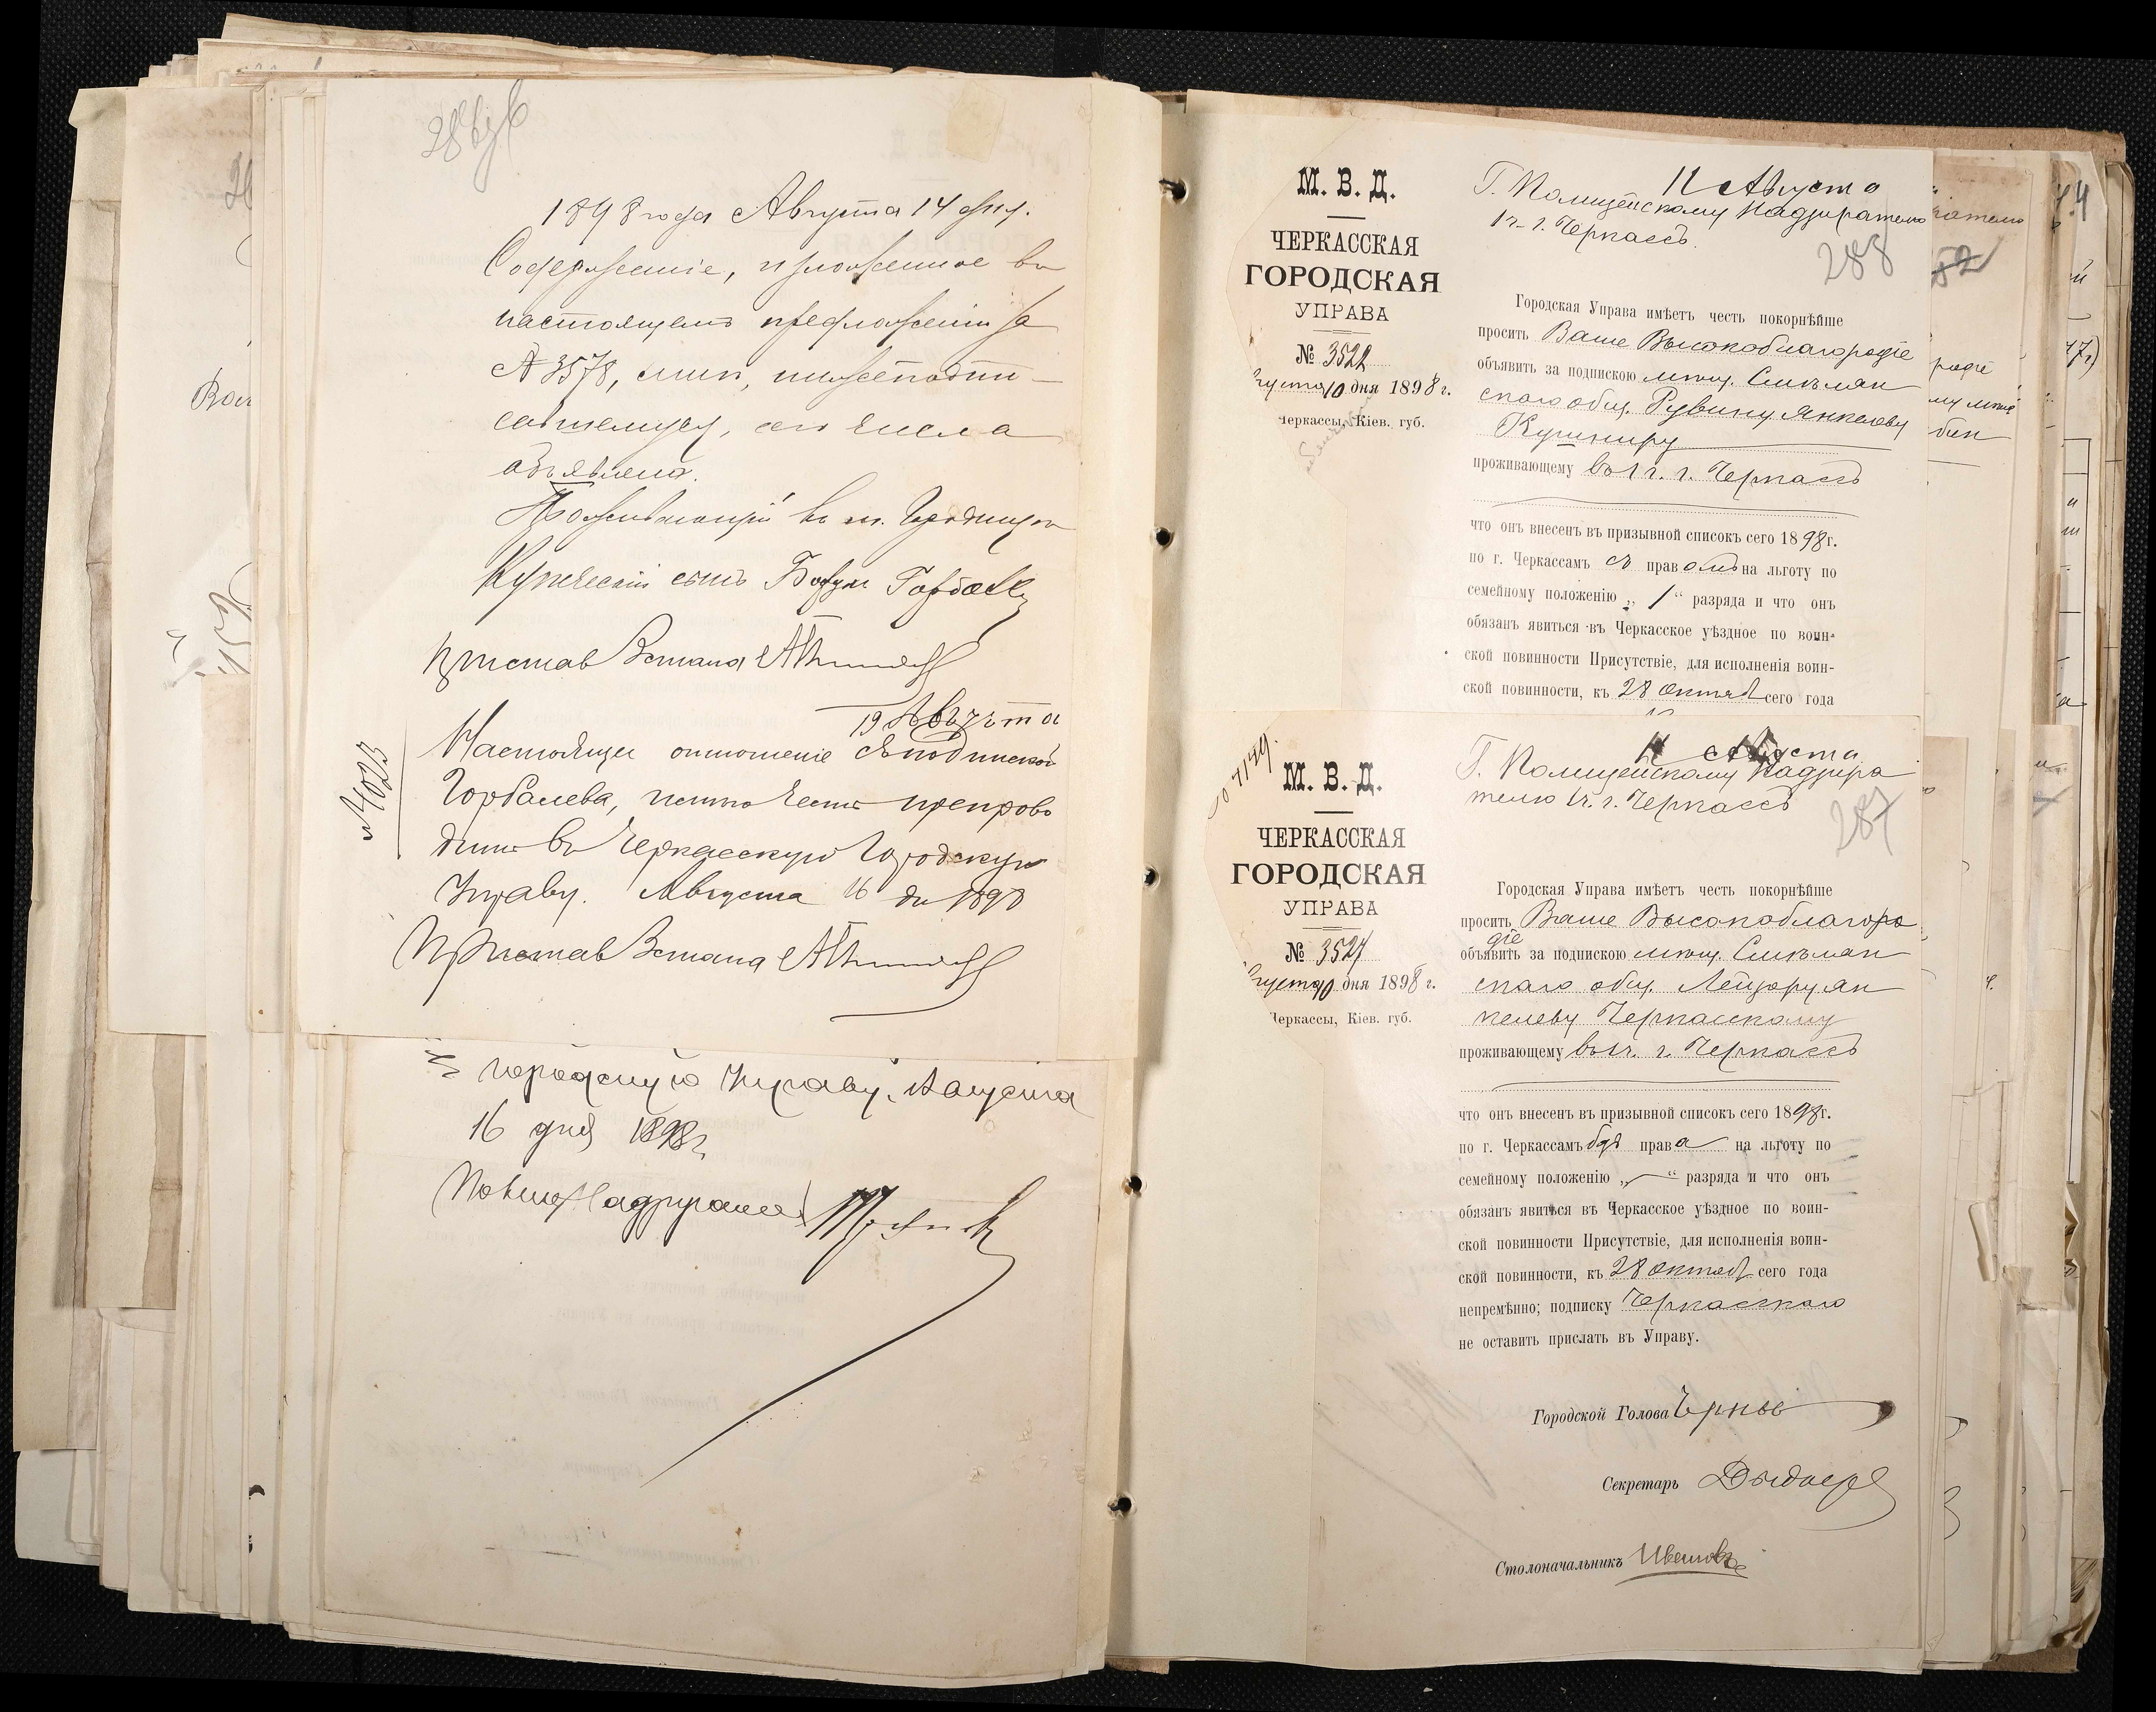 286 об
1898 года Августа 14 дня.
Содержание, изложенное въ
настоящемъ предложеніи за
№ 3578, мнѣ, нижеподпи-
савшемуся, сего числа
объявлено.
Проживающій въ м. Городищѣ
Купеческій сынъ
Приставъ 3 стана
19 Августа
№ 4023
Настоящее отношеніе съ подпискою
Горбалева, почтио честь препрово
дить въ Черкасскую Городскую
Управу. Августа 16 дн 1898
Приставъ 3 стана
Городскую Управу. Августа
16 дня 1898 г.
Надзиратель
М. В. Д.
ЧЕРКАССКАЯ
ГОРОДСКАЯ
УПРАВА
№ 3522
густа 10 дня 1898 г.
Черкассы, Кіев. губ.
12 Августа
Г. Полицейскому Надзирателю
1 ч. г. Черкассъ.
288
Городская Управа имѣетъ честь покорнѣйше
просить Ваше Высокоблагородіе
объявить за подпискою мѣщ. Смѣлян
скаго общ. Рувину Янкелеву
Кушниру
проживающему въ 1 ч. г. Черкассъ
что онъ внесенъ въ призывной списокъ сего 1898 г.
по г. Черкассамъ съ правомъ на льготу по
семейному положенію „1“ разряда и что онъ
обязанъ явиться въ Черкасское уѣздное по воин-
ской повинности Присутствіе, для исполненія воин-
ской повинности, къ 28 октяб сего года
М. В. Д.
ЧЕРКАССКАЯ
ГОРОДСКАЯ
УПРАВА
№ 3524
густа 10 дня 1898 г.
Черкассы, Кіев. губ.
Августа
Г. Полицейскому Надзира
телю 1 ч. г. Черкассъ
287
Городская Управа имѣетъ честь покорнѣйше
просить Ваше Высокоблагоро
діе
объявить за подпискою мѣщ. Смѣлян
скаго общ. Лейзору Ян
келеву Черкасскому
проживающему въ 1 ч. г. Черкассъ
что онъ внесенъ въ призывной списокъ сего 1898 г.
по г. Черкассамъ безъ права на льготу по
семейному положенію „—“ разряда и что онъ
обязанъ явиться въ Черкасское уѣздное по воин-
ской повинности Присутствіе, для исполненія воин-
ской повинности, къ 28 октяб сего года
непремѣнно; подписку Черкасскаго
не оставить прислать въ Управу.
Городской Голова
Секретарь
Столоначальникъ